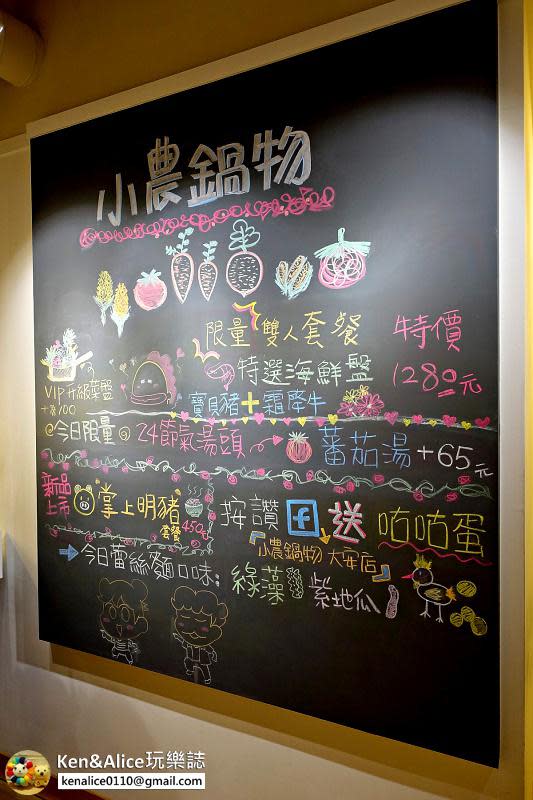 小農鍋物
限量 雙人套餐 特價
特選海鮮盤 1280元
寶貝豬+霜降牛
VIP升級菜盤
+$100
@今日限量@ 24節氣湯頭 → 蕃茄湯 +65元
新品上市 掌上明豬 套餐 450元
按讚 f 送 咕咕蛋
『小農鍋物 大安店』
→ 今日蕾絲麵口味: 綠藻 紫地瓜
Ken&Alice玩樂誌
kenalice0110@gmail.com